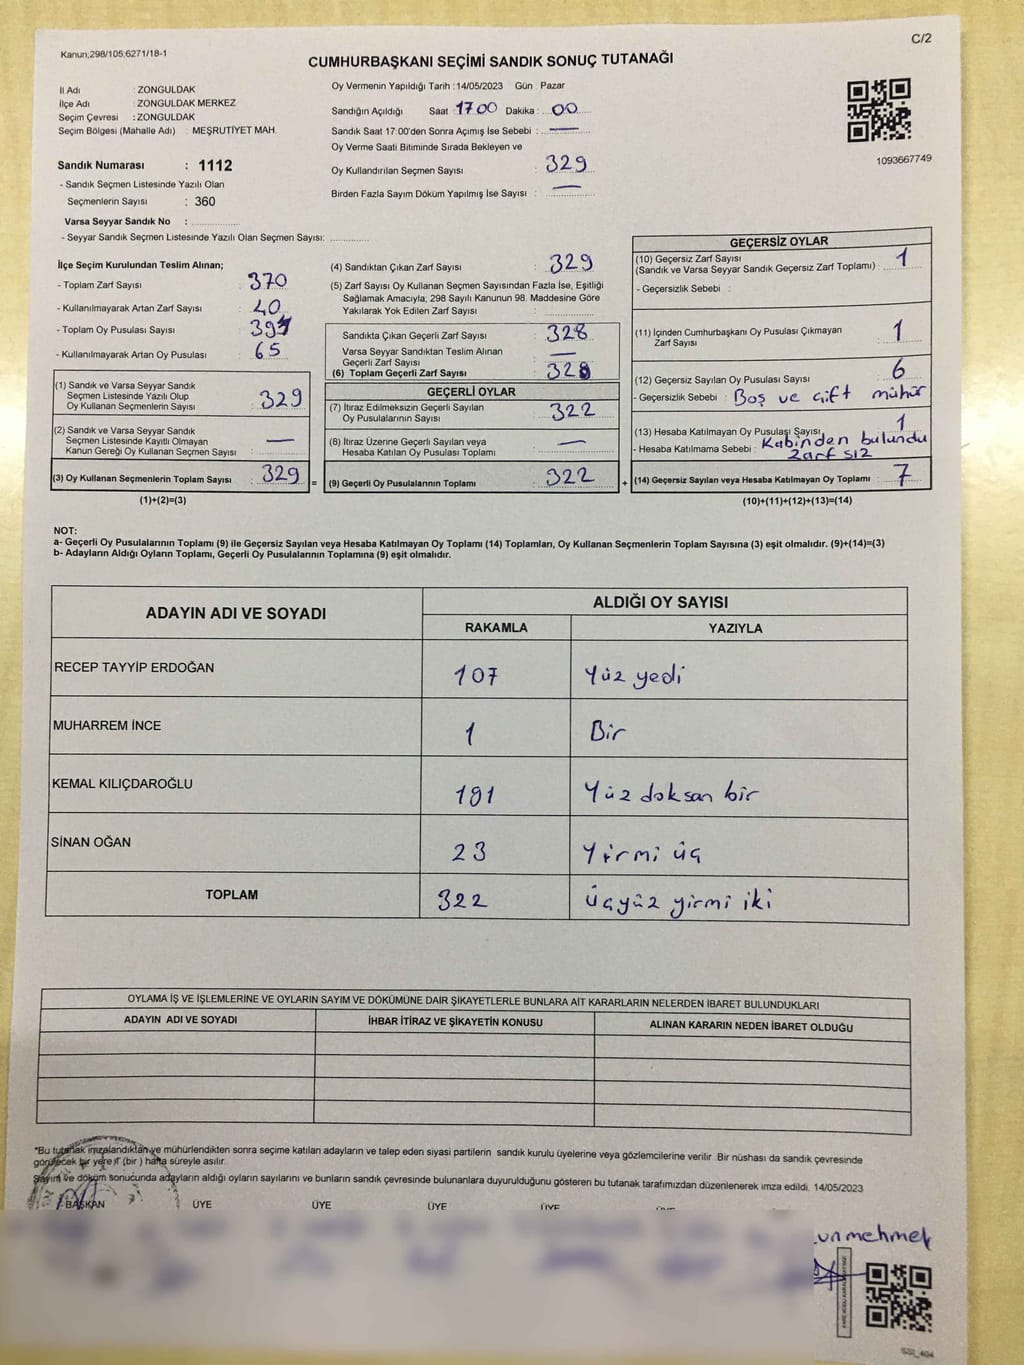 Kanun;298/105;6271/18-1
C/2
CUMHURBAŞKANI SEÇİMİ SANDIK SONUÇ TUTANAĞI
İl Adı : ZONGULDAK
İlçe Adı : ZONGULDAK MERKEZ
Seçim Çevresi : ZONGULDAK
Seçim Bölgesi (Mahalle Adı) : MEŞRUTİYET MAH.
Sandık Numarası : 1112
- Sandık Seçmen Listesinde Yazılı Olan
Seçmenlerin Sayısı : 360
Varsa Seyyar Sandık No :
- Seyyar Sandık Seçmen Listesinde Yazılı Olan Seçmen Sayısı:
Oy Vermenin Yapıldığı Tarih :14/05/2023 Gün : Pazar
Sandığın Açıldığı Saat 17 00 Dakika : 00
Sandık Saat 17:00'den Sonra Açımış İse Sebebi : —
Oy Verme Saati Bitiminde Sırada Bekleyen ve
Oy Kullandırılan Seçmen Sayısı : 329
Birden Fazla Sayım Döküm Yapılmış İse Sayısı : —
1093667749
İlçe Seçim Kurulundan Teslim Alınan;
- Toplam Zarf Sayısı : 370
- Kullanılmayarak Artan Zarf Sayısı : 40
- Toplam Oy Pusulası Sayısı :
- Kullanılmayarak Artan Oy Pusulası : 65
(1) Sandık ve Varsa Seyyar Sandık
Seçmen Listesinde Yazılı Olup
Oy Kullanan Seçmenlerin Sayısı : 329
(2) Sandık ve Varsa Seyyar Sandık
Seçmen Listesinde Kayıtlı Olmayan
Kanun Gereği Oy Kullanan Seçmen Sayısı : —
(3) Oy Kullanan Seçmenlerin Toplam Sayısı : 329
(1)+(2)=(3)
=
(4) Sandıktan Çıkan Zarf Sayısı : 329
(5) Zarf Sayısı Oy Kullanan Seçmen Sayısından Fazla İse, Eşitliği
Sağlamak Amacıyla; 298 Sayılı Kanunun 98. Maddesine Göre
Yakılarak Yok Edilen Zarf Sayısı :
Sandıkta Çıkan Geçerli Zarf Sayısı : 328
Varsa Seyyar Sandıktan Teslim Alınan
Geçerli Zarf Sayısı : —
(6) Toplam Geçerli Zarf Sayısı : 328
GEÇERLİ OYLAR
(7) İtiraz Edilmeksizin Geçerli Sayılan
Oy Pusulalarının Sayısı : 322
(8) İtiraz Üzerine Geçerli Sayılan veya
Hesaba Katılan Oy Pusulası Toplamı : —
(9) Geçerli Oy Pusulalarının Toplamı : 322
+
GEÇERSİZ OYLAR
(10) Geçersiz Zarf Sayısı
(Sandık ve Varsa Seyyar Sandık Geçersiz Zarf Toplamı) : 1
- Geçersizlik Sebebi :
(11) İçinden Cumhurbaşkanı Oy Pusulası Çıkmayan
Zarf Sayısı : 1
(12) Geçersiz Sayılan Oy Pusulası Sayısı : 6
- Geçersizlik Sebebi : Boş ve çift mühür
(13) Hesaba Katılmayan Oy Pusulası Sayısı : 1
- Hesaba Katılmama Sebebi : Kabinden bulundu
Zarf sız
(14) Geçersiz Sayılan veya Hesaba Katılmayan Oy Toplamı : 7
(10)+(11)+(12)+(13)=(14)
NOT:
a- Geçerli Oy Pusulalarının Toplamı (9) ile Geçersiz Sayılan veya Hesaba Katılmayan Oy Toplamı (14) Toplamları, Oy Kullanan Seçmenlerin Toplam Sayısına (3) eşit olmalıdır. (9)+(14)=(3)
b- Adayların Aldığı Oyların Toplamı, Geçerli Oy Pusulalarının Toplamına (9) eşit olmalıdır.
ADAYIN ADI VE SOYADI
ALDIĞI OY SAYISI
RAKAMLA YAZIYLA
RECEP TAYYİP ERDOĞAN 107 Yüz yedi
MUHARREM İNCE 1 Bir
KEMAL KILIÇDAROĞLU 191 Yüz doksan bir
SİNAN OĞAN 23 Yirmi üç
TOPLAM 322 Üçyüz yirmi iki
OYLAMA İŞ VE İŞLEMLERİNE VE OYLARIN SAYIM VE DÖKÜMÜNE DAİR ŞİKAYETLERLE BUNLARA AİT KARARLARIN NELERDEN İBARET BULUNDUKLARI
ADAYIN ADI VE SOYADI İHBAR İTİRAZ VE ŞİKAYETİN KONUSU ALINAN KARARIN NEDEN İBARET OLDUĞU
*Bu tutanak imzalandıktan ve mühürlendikten sonra seçime katılan adayların ve talep eden siyasi partilerin sandık kurulu üyelerine veya gözlemcilerine verilir. Bir nüshası da sandık çevresinde
görülecek bir yere 1 (bir) hafta süreyle asılır.
Sayım ve döküm sonucunda adayların aldığı oyların sayılarını ve bunların sandık çevresinde bulunanlara duyurulduğunu gösteren bu tutanak tarafımızdan düzenlenerek imza edildi. 14/05/2023
BAŞKAN ÜYE ÜYE ÜYE ÜYE
mehmet